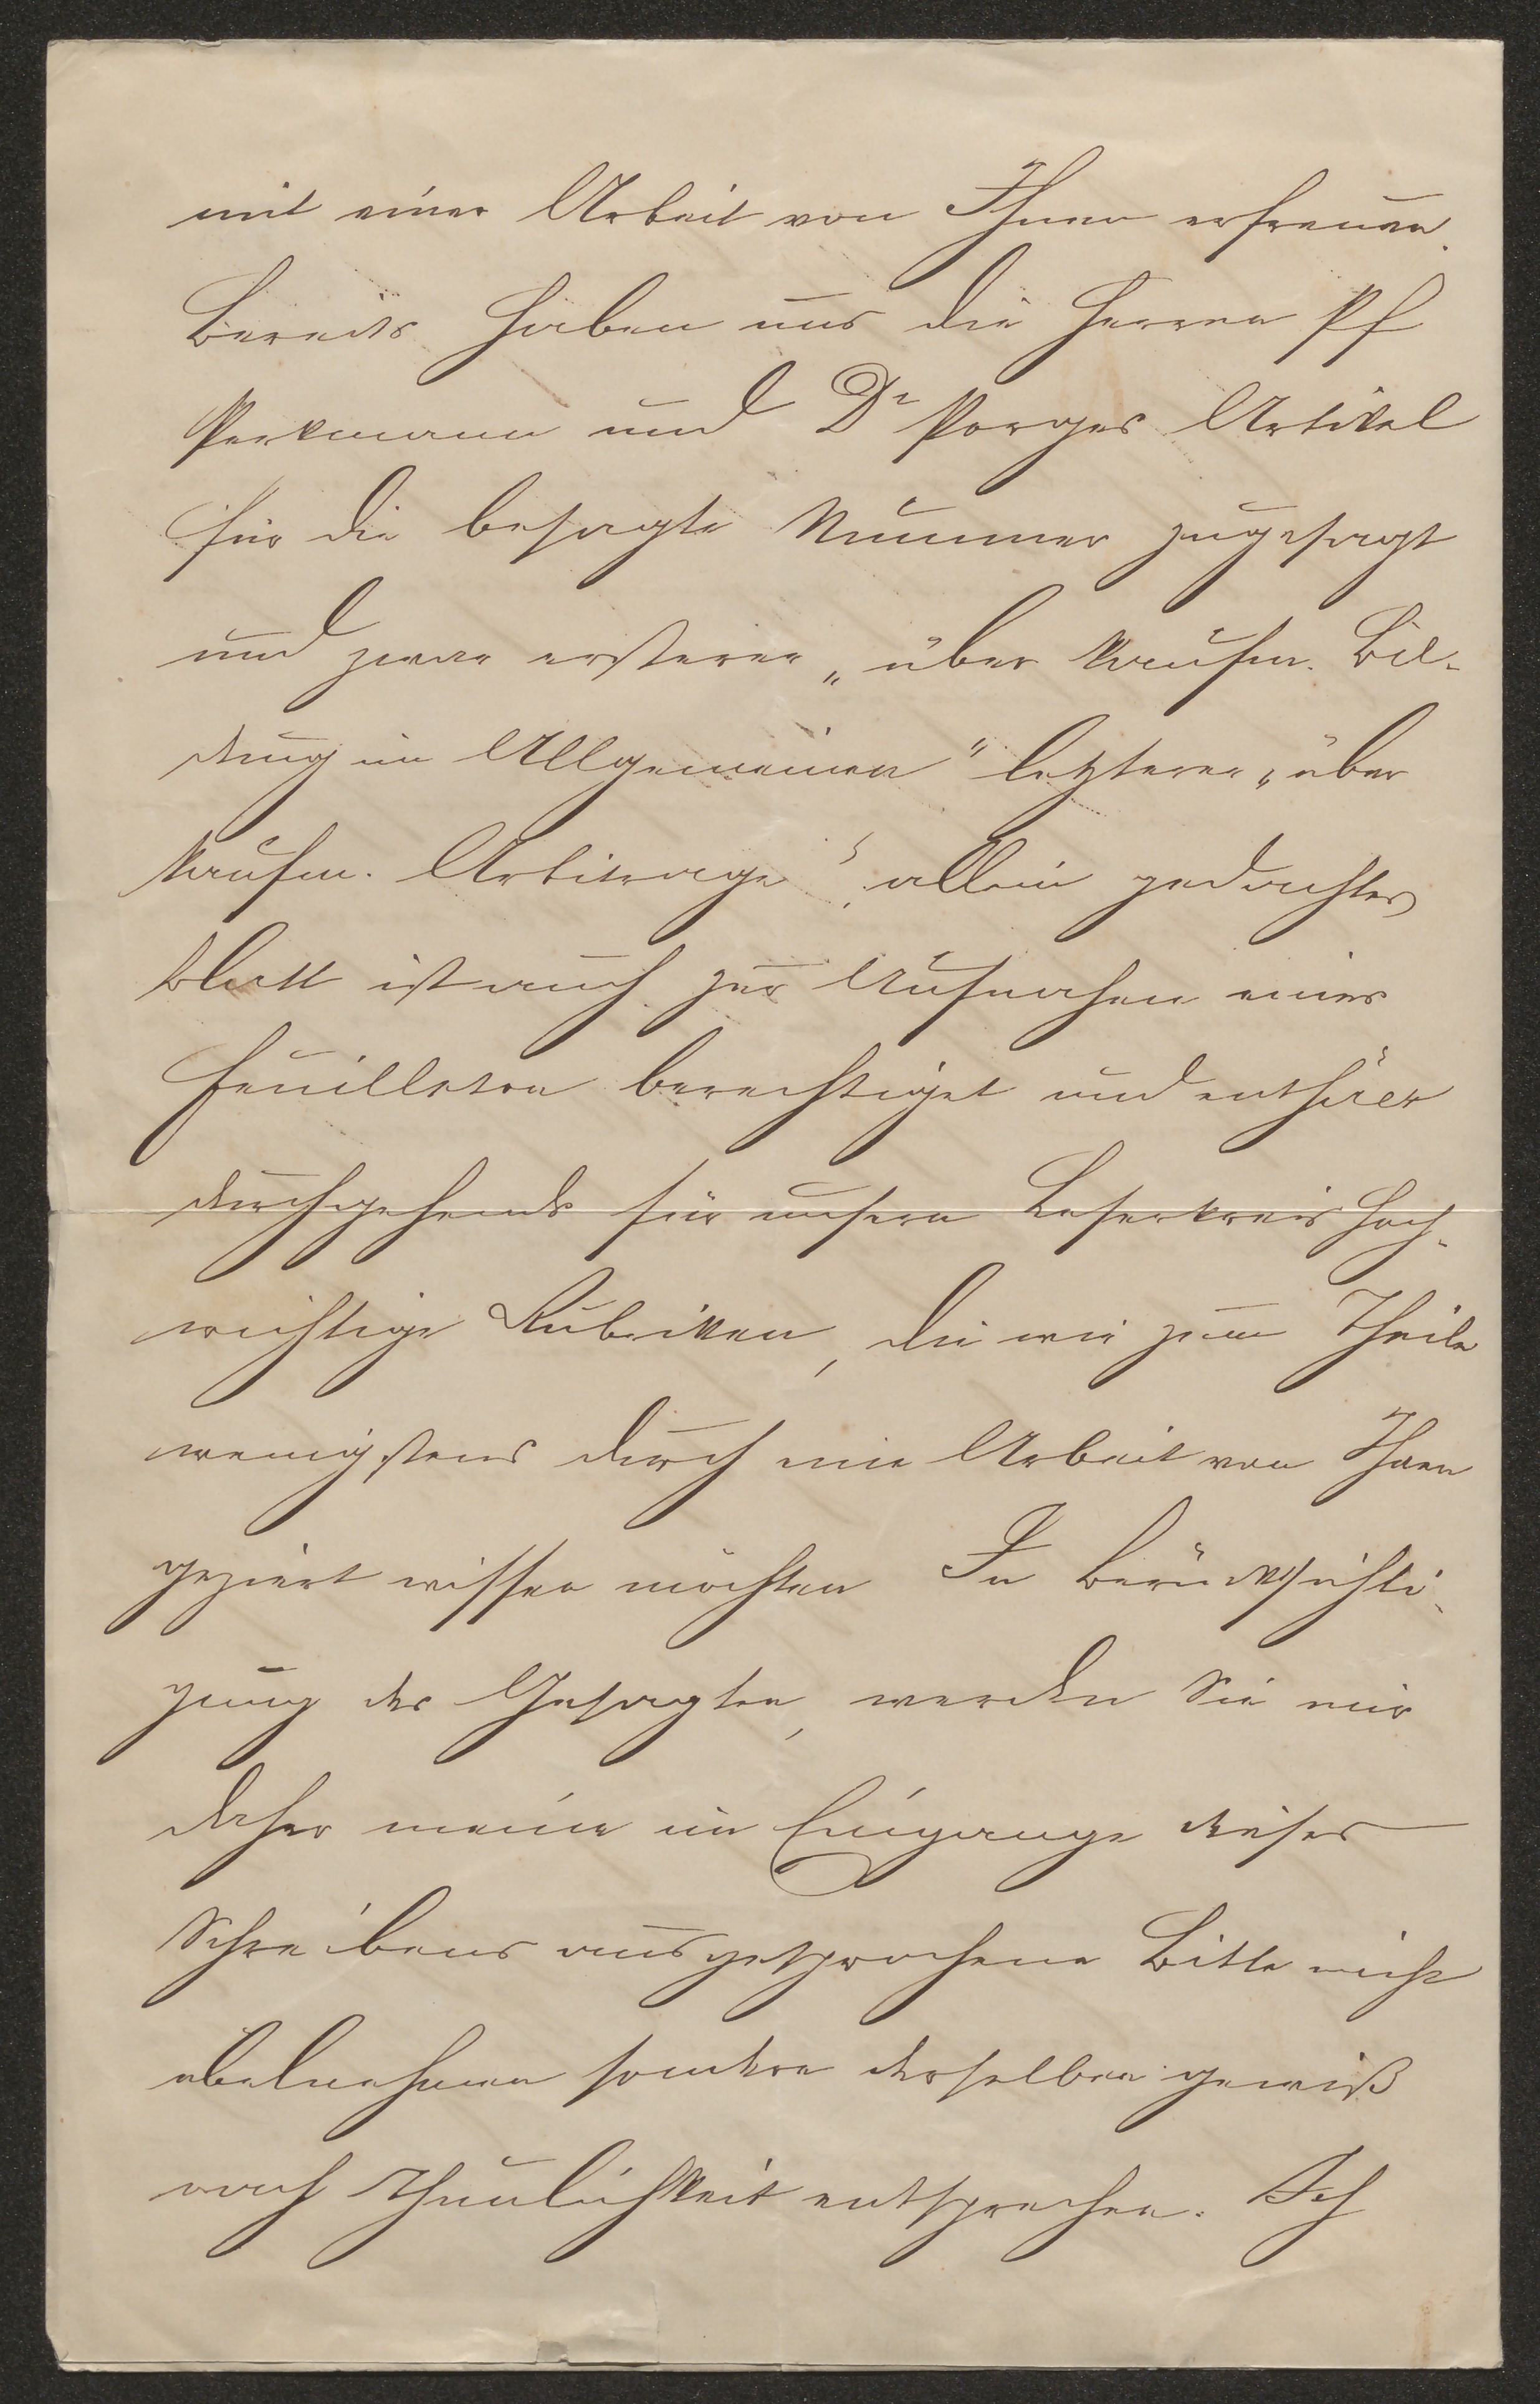 mit einer Arbeit von Ihnen erfreuen.
Bereits haben uns die Herren Pf
Perkmann und Dr Porges Artikel
für die besagte Nummer zugesagt
und zwar ersterer „über kaufm. Bil-
dung im Allgemeinen“ letzterer „über
kaufm. Arbitrage“, allein gedachtes
Blatt ist auch zur Aufnahme eines
Feuilleton berechtiget und enthält
durchgehends für unsern Leserkreis hoch-
wichtige Rubriken, die wir zum Theile
wenigstens durch eine Arbeit von Ihnen
geziert wissen möchten In Berücksichti-
gung des Gesagten, werden Sie mir
daher meine im Eingange dieses
Schreibens ausgesprochene Bitte nicht
übelnehmen sondern derselben gewiß
nach Thunlichkeit entsprechen. Ich